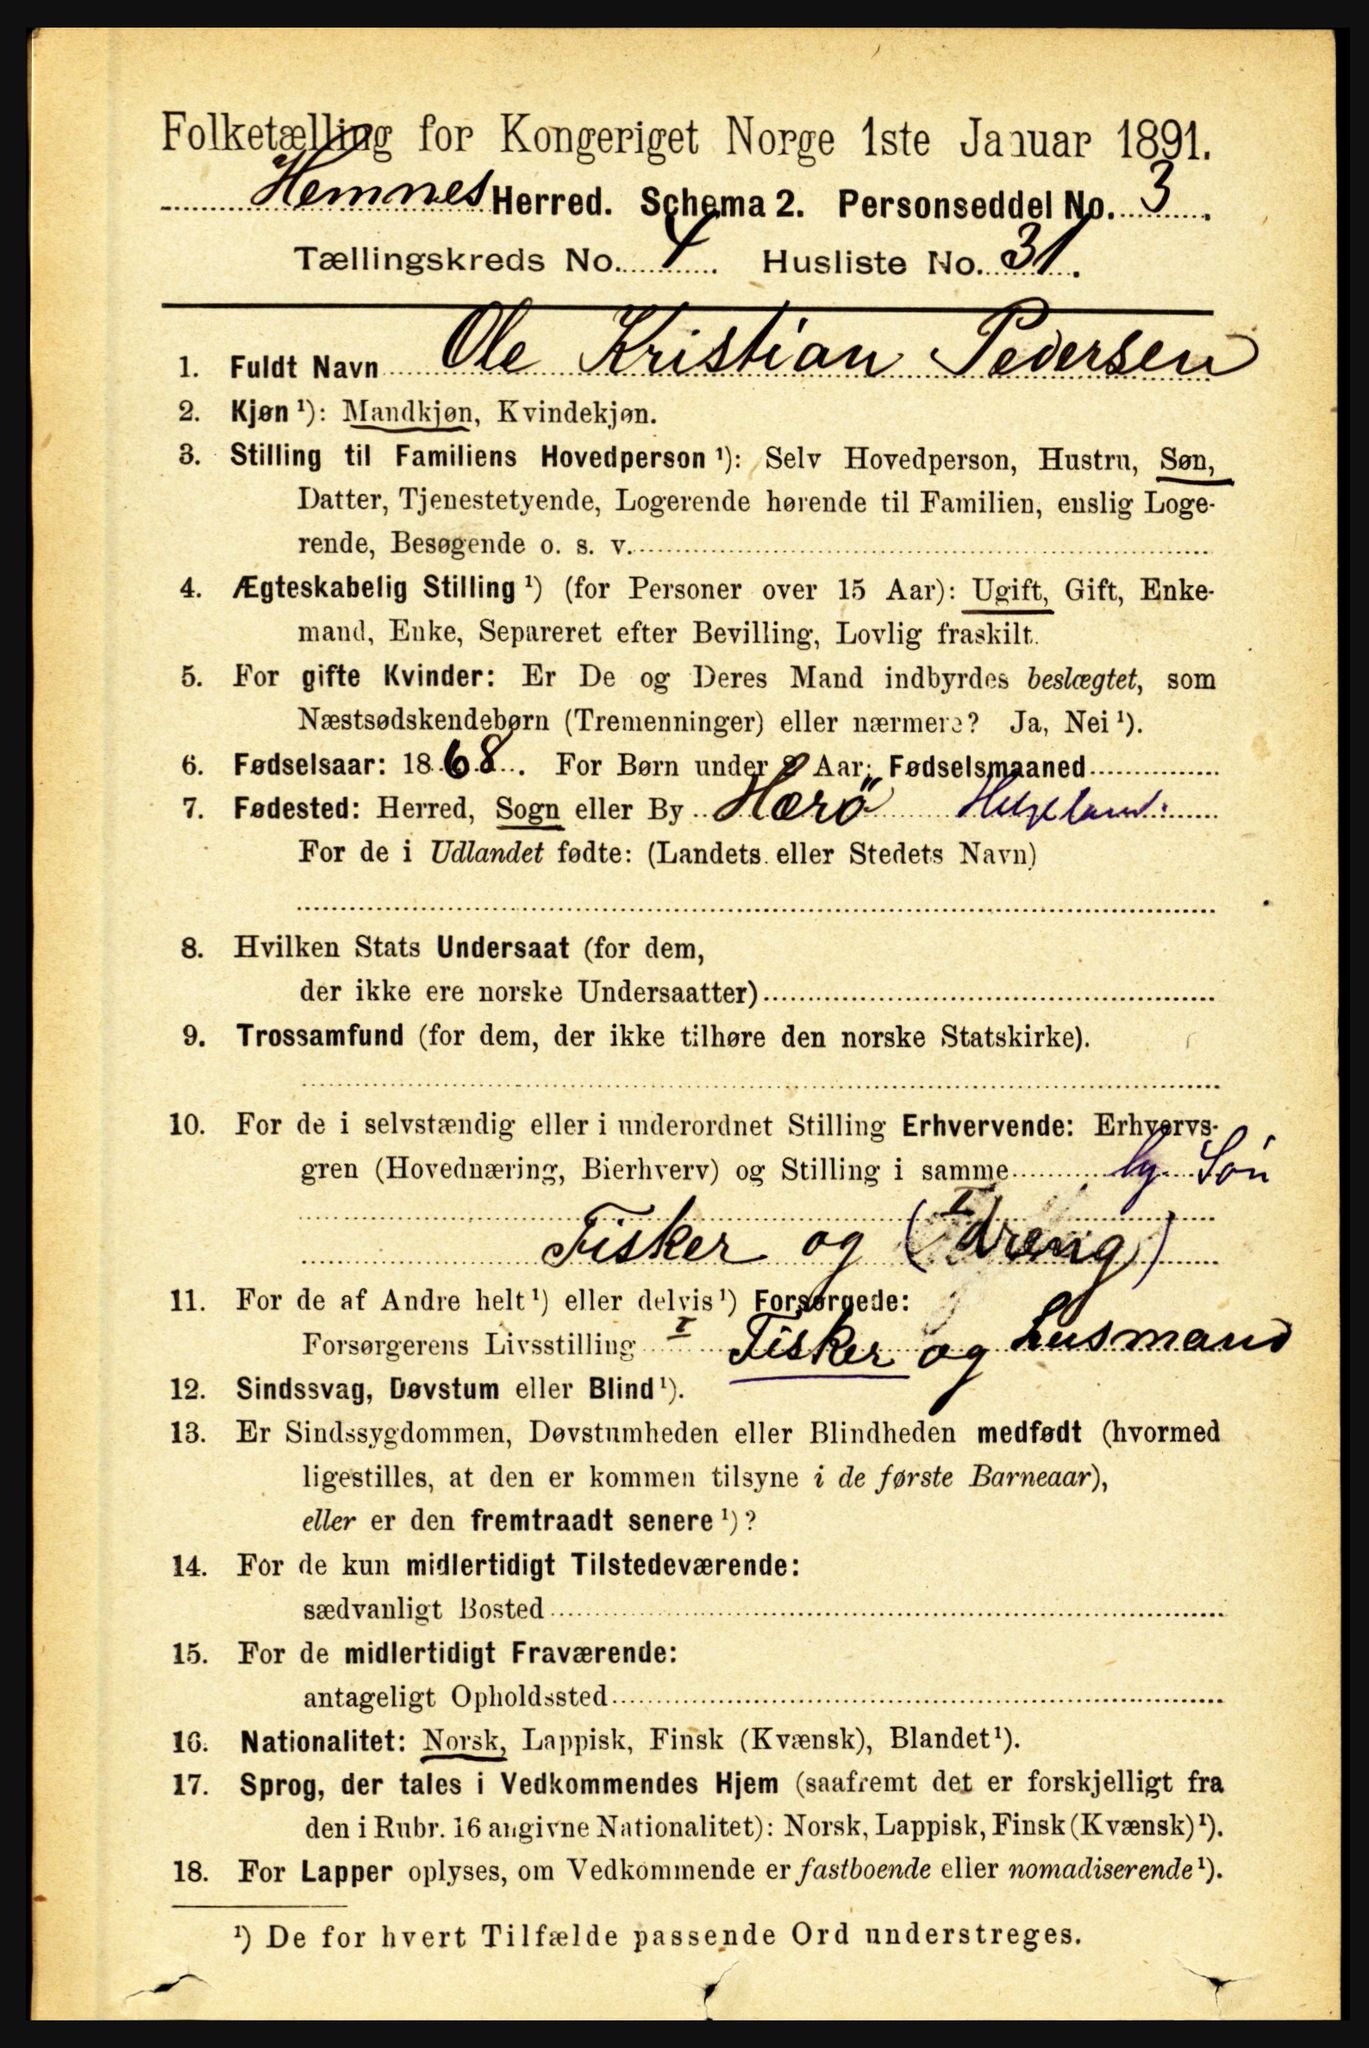 Folketælling for Kongeriget Norge 1ste Januar 1891.
Hemnes Herred. Schema 2. Personseddel No. 3.
Tællingskreds No. 4. Husliste No. 31.
1. Fuldt Navn Ole Kristian Pedersen
2. Kjøn ¹): Mandkjøn, Kvindekjøn.
3. Stilling til Familiens Hovedperson ¹): Selv Hovedperson, Hustru, Søn,
Datter, Tjenestetyende, Logerende hørende til Familien, enslig Loge-
rende, Besøgende o. s. v.
4. Ægteskabelig Stilling ¹) (for Personer over 15 Aar): Ugift, Gift, Enke-
mand, Enke, Separeret efter Bevilling, Lovlig fraskilt.
5. For gifte Kvinder: Er De og Deres Mand indbyrdes beslægtet, som
Næstsødskendebørn (Tremenninger) eller nærmere? Ja, Nei ¹).
6. Fødselsaar: 1868. For Børn under 2 Aar: Fødselsmaaned
7. Fødested: Herred, Sogn eller By Herø Helgeland:
For de i Udlandet fødte: (Landets eller Stedets Navn)
8. Hvilken Stats Undersaat (for dem,
der ikke ere norske Undersaatter)
9. Trossamfund (for dem, der ikke tilhøre den norske Statskirke).
10. For de i selvstændig eller i underordnet Stilling Erhvervende: Erhvervs-
gren (Hovednæring, Bierhverv) og Stilling i samme Søn
Fisker og (dreng)
11. For de af Andre helt ¹) eller delvis ¹) Forsørgede:
Forsørgerens Livsstilling I Fisker og Husmand
12. Sindssvag, Døvstum eller Blind ¹).
13. Er Sindssygdommen, Døvstumheden eller Blindheden medfødt (hvormed
ligestilles, at den er kommen tilsyne i de første Barneaar),
eller er den fremtraadt senere ¹)?
14. For de kun midlertidigt Tilstedeværende:
sædvanligt Bosted
15. For de midlertidigt Fraværende:
antageligt Opholdssted
16. Nationalitet: Norsk, Lappisk, Finsk (Kvænsk), Blandet ¹).
17. Sprog, der tales i Vedkommendes Hjem (saafremt det er forskjelligt fra
den i Rubr. 16 angivne Nationalitet): Norsk, Lappisk, Finsk (Kvænsk) ¹).
18. For Lapper oplyses, om Vedkommende er fastboende eller nomadiserende ¹).
¹) De for hvert Tilfælde passende Ord understreges.